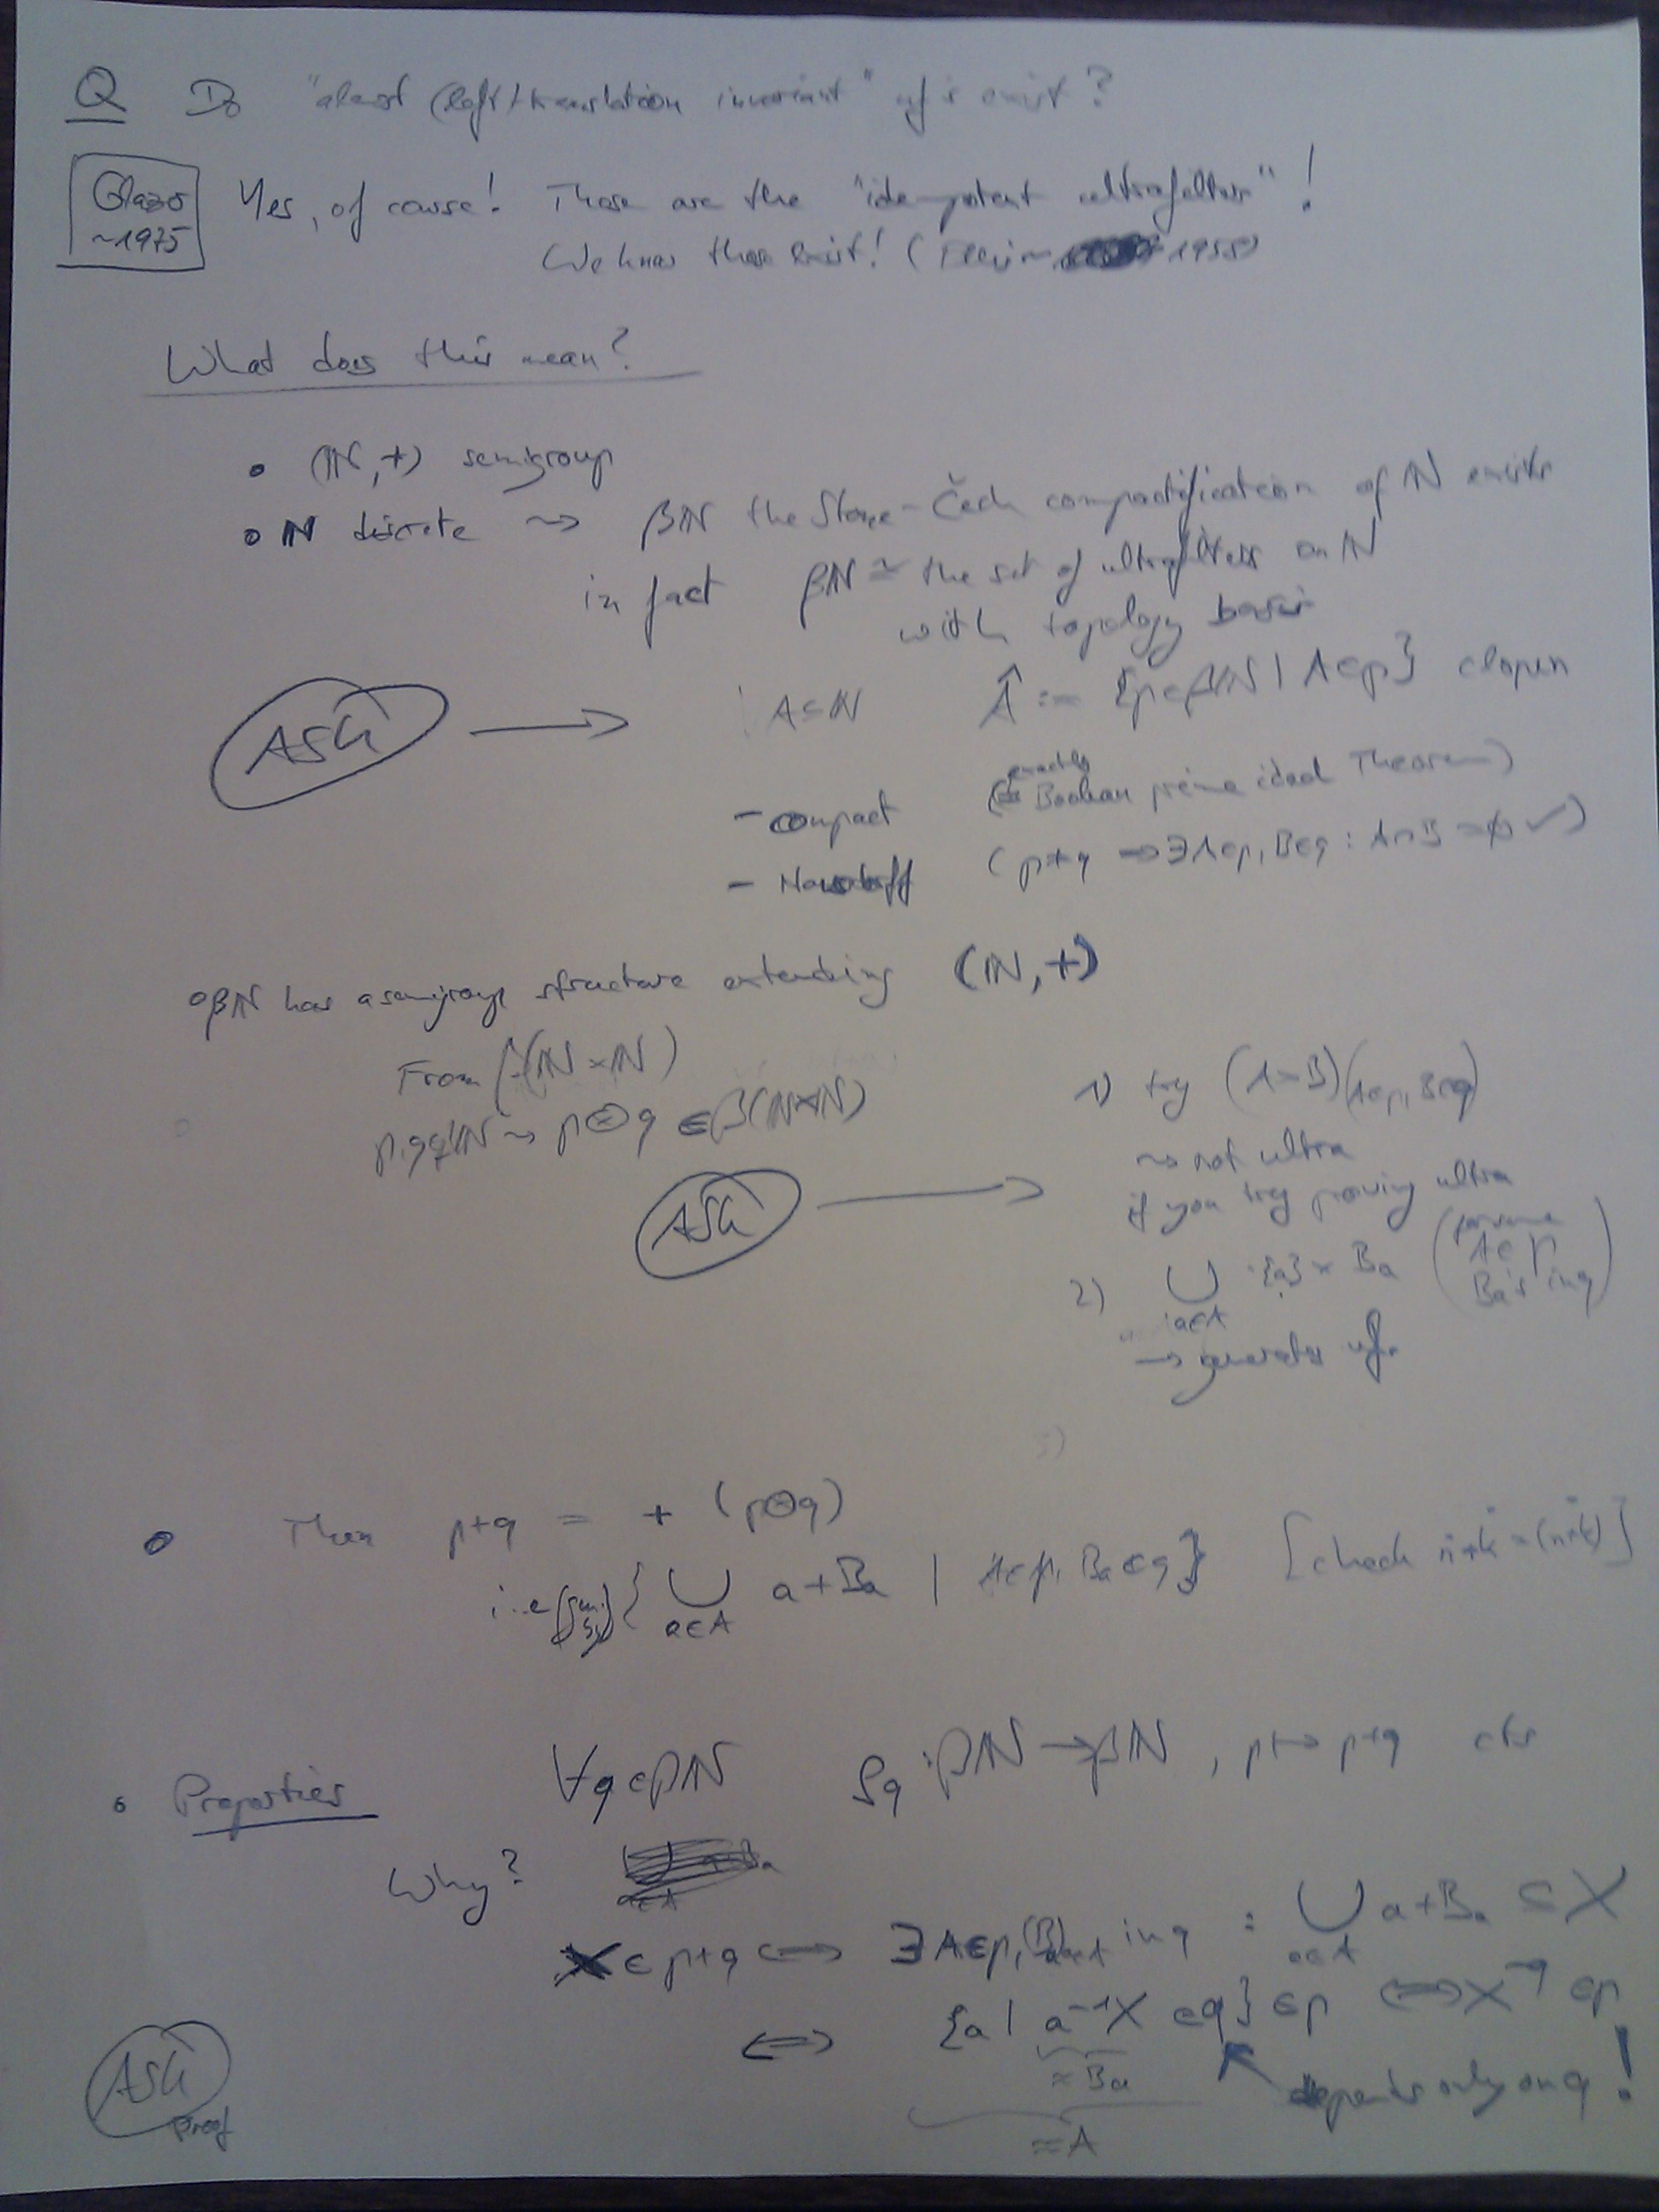 Q Do "almost (left) translation invariant" uf's exist?
Glazer ~1975
Yes, of course! These are the "idempotent ultrafilters"!
We know these exist! ( 1958)
What does this mean?
• (ℕ,+) semigroup
• ℕ discrete ⇝ βℕ the Stone-Čech compactification of ℕ exists
in fact βℕ ≅ the set of ultrafilters on ℕ
with topology basis
ASK → A⊆ℕ Â := {p∈βℕ | A∈p} clopen
- compact (exactly Boolean prime ideal Theorem)
- Hausdorff (p≠q → ∃A∈p, B∈q : A∩B=∅ ✓)
• βℕ has a semigroup structure extending (ℕ,+)
From β(ℕ×ℕ)
p,q∈βℕ ⇝ p⊗q ∈ β(ℕ×ℕ)
ASK →
1) try (A×B)(A∈p, B∈q)
⇝ not ultra
if you try proving ultra
2) ⋃_{a∈A} {a}×Ba (for some A∈p Ba's in q)
→ generates uf.
• Then p+q = + (p⊗q)
i.e. {⋃_{a∈A} a+Ba | A∈p, Ba∈q} [check n+k = (n+k)]
• Properties ∀q∈βℕ ρq : βℕ→βℕ, p↦p+q cts
Why?
X∈p+q ⟺ ∃A∈p, (Ba)a∈A in q : ⋃_{a∈A} a+Ba ⊆ X
⟺ {a | a⁻¹X ∈q} ∈p ⟺ X⁻q ∈p
≈Ba depends only on q!
≈A
ASK Proof